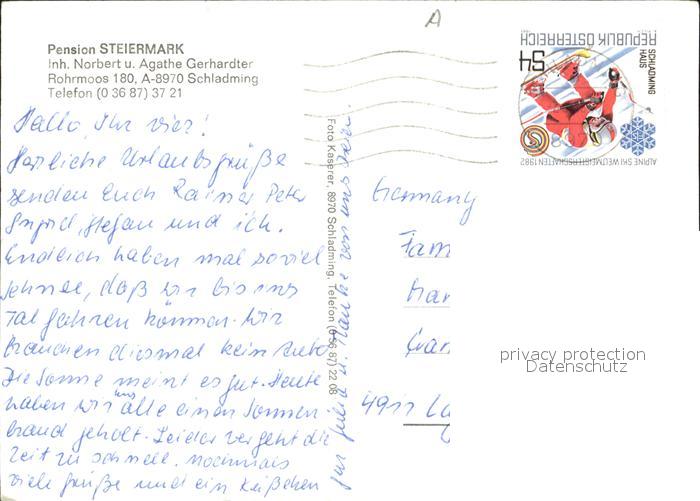 A
Pension STEIERMARK
Inh. Norbert u. Agathe Gerhardter
Rohrmoos 180, A-8970 Schladming
Telefon (0 36 87) 37 21
Hallo, Ihr vier!
Herzliche Urlaubsgrüße
senden Euch Rainer Peter
Ingrid, Stefan und ich.
Endlich haben mal soviel
Schnee, daß wir bis ins
Tal fahren können. Wir
brauchen diesmal kein Auto
Die Sonne meint es gut. Heute
haben wir uns alle einen Sonnen
brand geholt. Leider vergeht die
Zeit zu schnell. Nochmals
viele Grüße und ein Küßchen
für Julia u. von uns
Foto Kaserer, 8970 Schladming, Telefon (0 36 87) 22 08
REPUBLIK ÖSTERREICH
S4
SCHLADMING
HAUS
ALPINE SKI WELTMEISTERSCHAFTEN 1982
Germany
Fam
Mar
4911 La
privacy protection
Datenschutz